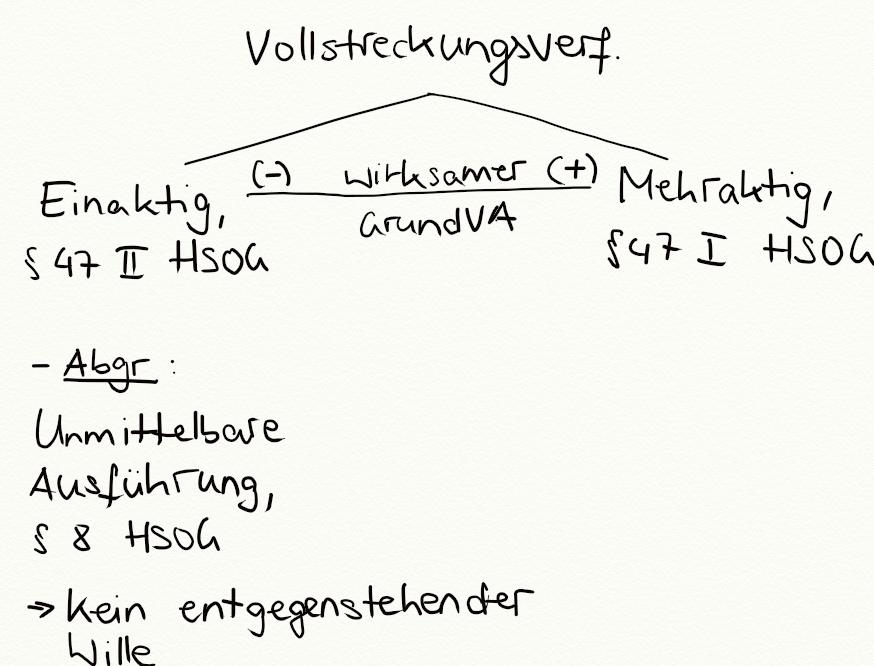 Vollstreckungsverf.
Einaktig,
(-) wirksamer (+)
GrundVA
Mehraktig,
§ 47 II HSOG
§ 47 I HSOG
- Abgr :
Unmittelbare
Ausführung,
§ 8 HSOG
→ kein entgegenstehender
Wille